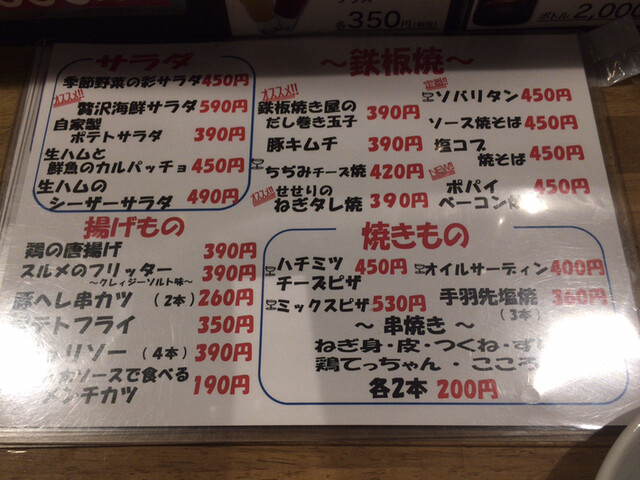 各350円(税抜)
ボトル2,000
サラダ
季節野菜の彩サラダ450円
オススメ!!
贅沢海鮮サラダ590円
自家製
ポテトサラダ 390円
生ハムと
鮮魚のカルパッチョ 450円
生ハムの
シーザーサラダ 490円
揚げもの
鶏の唐揚げ 390円
スルメのフリッター 390円
〜クレィジーソルト味〜
豚ヘレ串カツ(2本)260円
テトフライ 350円
リソー(4本)390円
ソースで食べる
メンチカツ 190円
〜鉄板焼〜
オススメ!!
鉄板焼き屋の
だし巻き玉子 390円
豚キムチ 390円
ちぢみチーズ焼 420円
オススメ!!
せせりの
ねぎタレ焼 390円
ソバリタン 450円
ソース焼そば 450円
塩コブ
焼そば 450円
ポパイ
ベーコン 450円
焼きもの
ハチミツ
チーズピザ 450円
ミックスピザ 530円
オイルサーディン 400円
手羽先塩焼 360円
(3本)
〜串焼き〜
ねぎ身・皮・つくね・ず
鶏てっちゃん・こころ
各2本 200円